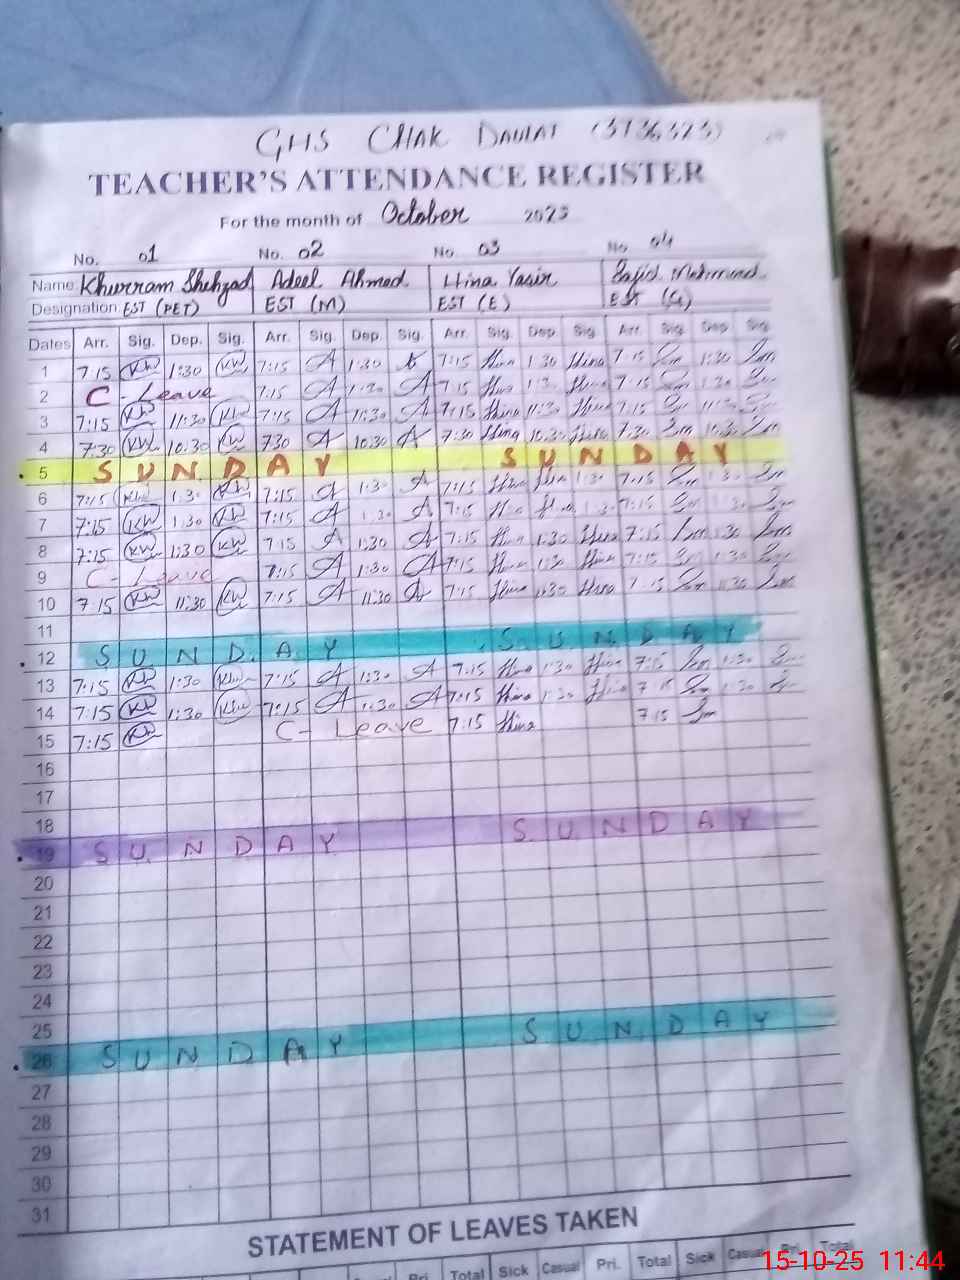 GHS CHAK DAULAT (3736323)
TEACHER'S ATTENDANCE REGISTER
For the month of October 2025
No. 01 No. 02 No. 03 No. 04
Name: Khurram Shehzad Adeel Ahmed Hina Yasir Sajid Mehmood
Designation EST (PET) EST (M) EST (E) EST (G)
Dates Arr. Sig. Dep. Sig. Arr. Sig. Dep. Sig. Arr. Sig. Dep. Sig. Arr. Sig. Dep. Sig.
1 7:15 KW 1:30 KW 7:15 A 1:30 A 7:15 Hina 1:30 Hina 7:15 Sm 1:30 Sm
2 C - Leave 7:15 A 1:30 A 7:15 Hina 1:30 Hina 7:15 Sm 1:30 Sm
3 7:15 KW 11:30 KW 7:15 A 11:30 A 7:15 Hina 11:30 Hina 7:15 Sm 11:30 Sm
4 7:30 KW 10:30 KW 7:30 A 10:30 A 7:30 Hina 10:30 Hina 7:30 Sm 10:30 Sm
5 SUNDAY SUNDAY
6 7:15 KW 1:30 KW 7:15 A 1:30 A 7:15 Hina Hina 1:30 7:15 Sm 1:30 Sm
7 7:15 KW 1:30 KW 7:15 A 1:30 A 7:15 Hina Hina 1:30 7:15 Sm 1:30 Sm
8 7:15 KW 1:30 KW 7:15 A 1:30 A 7:15 Hina 1:30 Hina 7:15 Sm 1:30 Sm
9 C - Leave 7:15 A 1:30 A 7:15 Hina 1:30 Hina 7:15 Sm 1:30 Sm
10 7:15 KW 11:30 KW 7:15 A 11:30 A 7:15 Hina 11:30 Hina 7:15 Sm 11:30 Sm
11
12 SUNDAY SUNDAY
13 7:15 KW 1:30 KW 7:15 A 1:30 A 7:15 Hina 1:30 Hina 7:15 Sm 1:30 Sm
14 7:15 KW 1:30 KW 7:15 A 1:30 A 7:15 Hina 1:30 Hina 7:15 Sm 1:30 Sm
15 7:15 KW C - Leave 7:15 Hina 7:15 Sm
16
17
18
19 SUNDAY SUNDAY
20
21
22
23
24
25
26 SUNDAY SUNDAY
27
28
29
30
31
STATEMENT OF LEAVES TAKEN
Casual Pri. Total Sick Casual Pri. Total Sick Casual Pri. Total
15-10-25 11:44